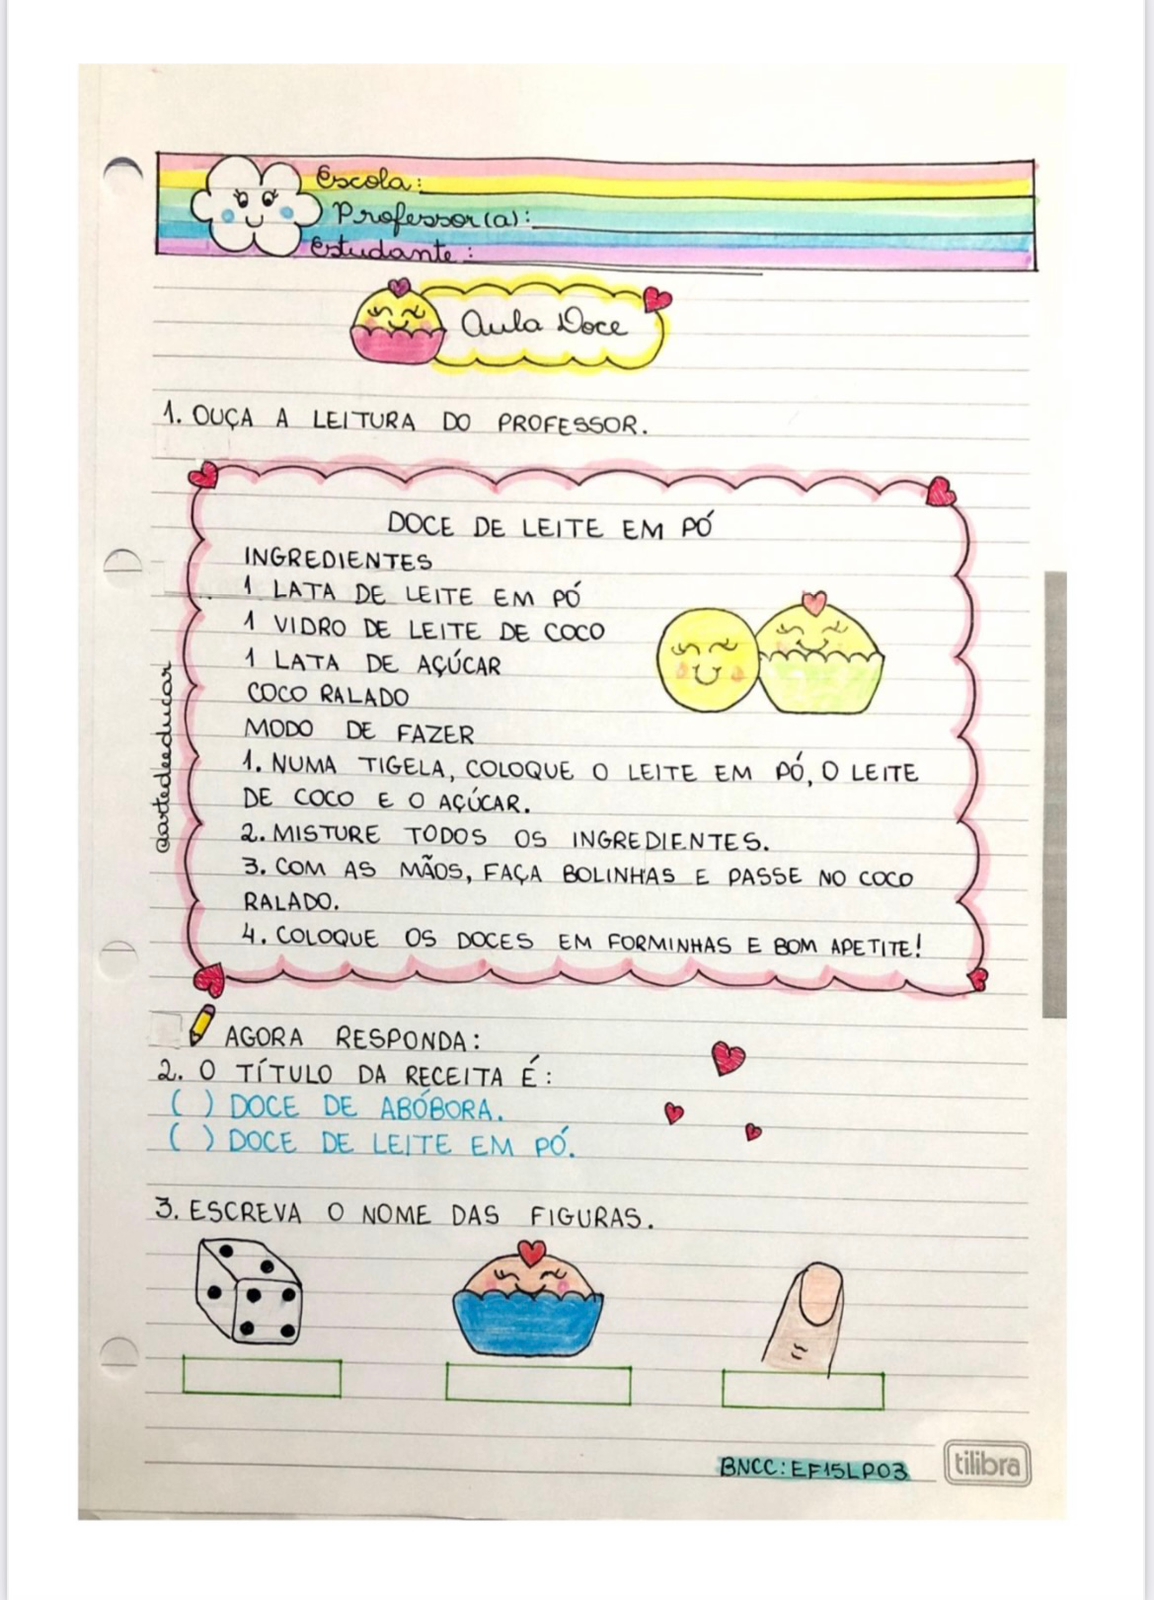 Escola:
Professor(a):
Estudante:
Aula Doce
1. OUÇA A LEITURA DO PROFESSOR.
DOCE DE LEITE EM PÓ
INGREDIENTES
1 LATA DE LEITE EM PÓ
1 VIDRO DE LEITE DE COCO
1 LATA DE AÇÚCAR
COCO RALADO
MODO DE FAZER
1. NUMA TIGELA, COLOQUE O LEITE EM PÓ, O LEITE
DE COCO E O AÇÚCAR.
2. MISTURE TODOS OS INGREDIENTES.
3. COM AS MÃOS, FAÇA BOLINHAS E PASSE NO COCO
RALADO.
4. COLOQUE OS DOCES EM FORMINHAS E BOM APETITE!
@artedeeducar
AGORA RESPONDA:
2. O TÍTULO DA RECEITA É:
( ) DOCE DE ABÓBORA.
( ) DOCE DE LEITE EM PÓ.
3. ESCREVA O NOME DAS FIGURAS.
BNCC: EF15LP03
tilibra